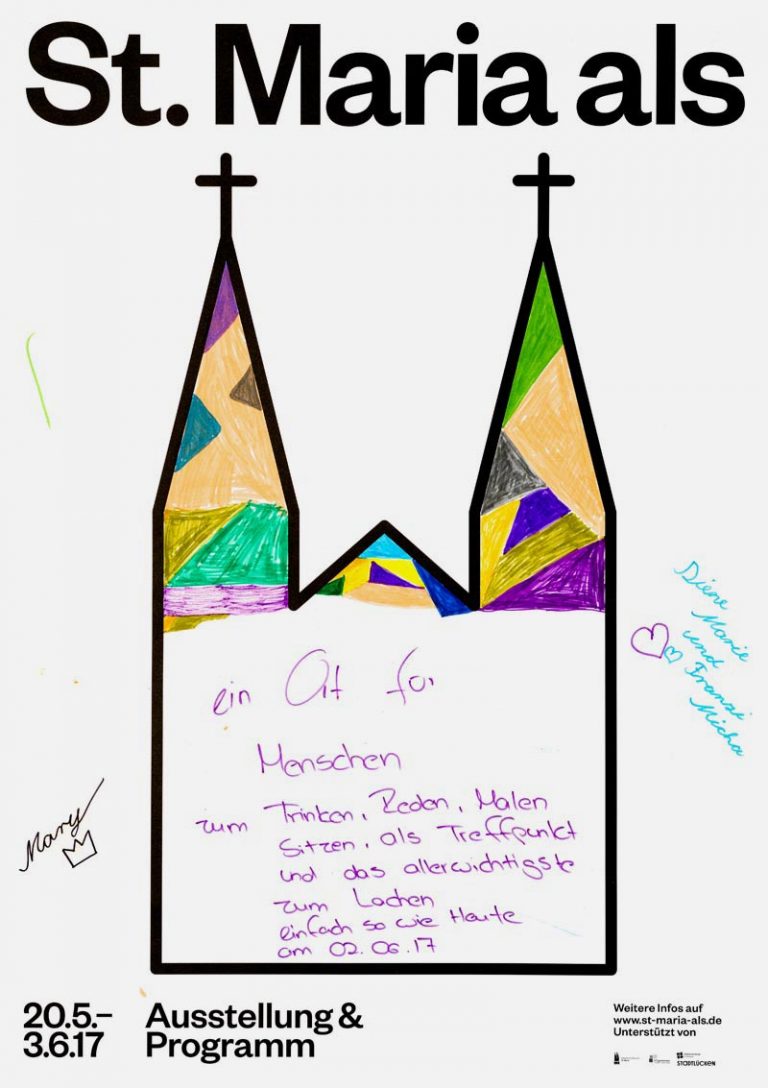 St. Maria als
ein Ort for
Menschen
zum Trinken, Reden, Malen
Sitzen, als Treffpunkt
und das allerwichtigste
zum Lachen
einfach so wie Heute
am 02.06.17
Diene
Marie
und
Franzi
Micha
Mary
20.5.–
3.6.17
Ausstellung &
Programm
Weitere Infos auf
www.st-maria-als.de
Unterstützt von
STADTLÜCKEN